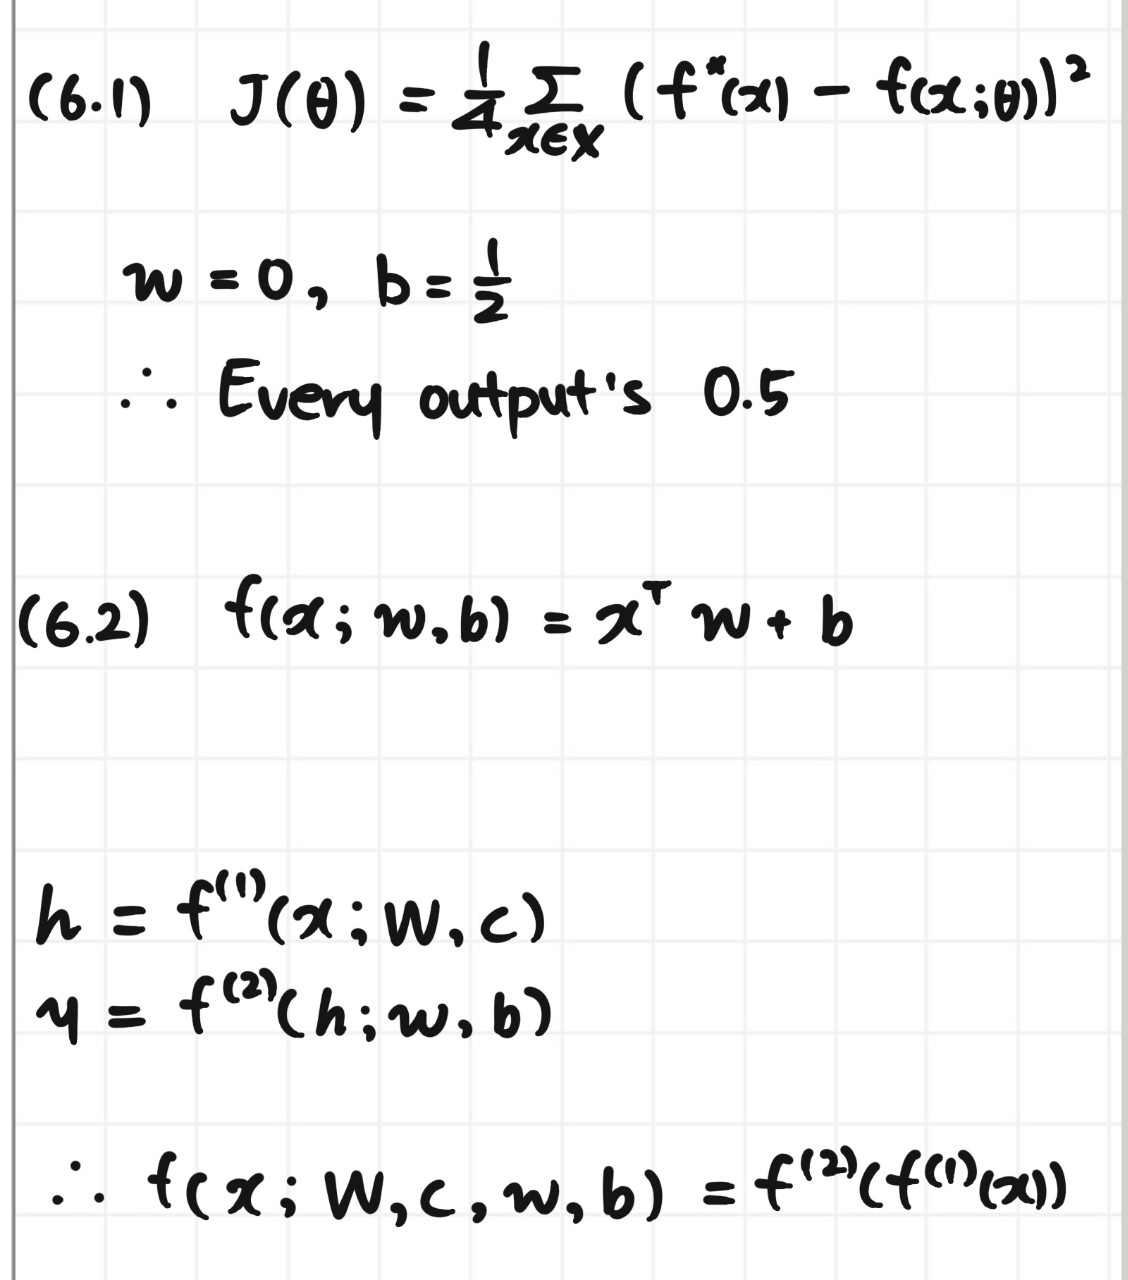 (6.1) J(θ) = 1/4 Σ x∈X (f*(x) - f(x;θ))²
w = 0, b = 1/2
∴ Every output's 0.5
(6.2) f(x; w, b) = xᵀ w + b
h = f⁽¹⁾(x; W, c)
y = f⁽²⁾(h; w, b)
∴ f(x; W, c, w, b) = f⁽²⁾(f⁽¹⁾(x))